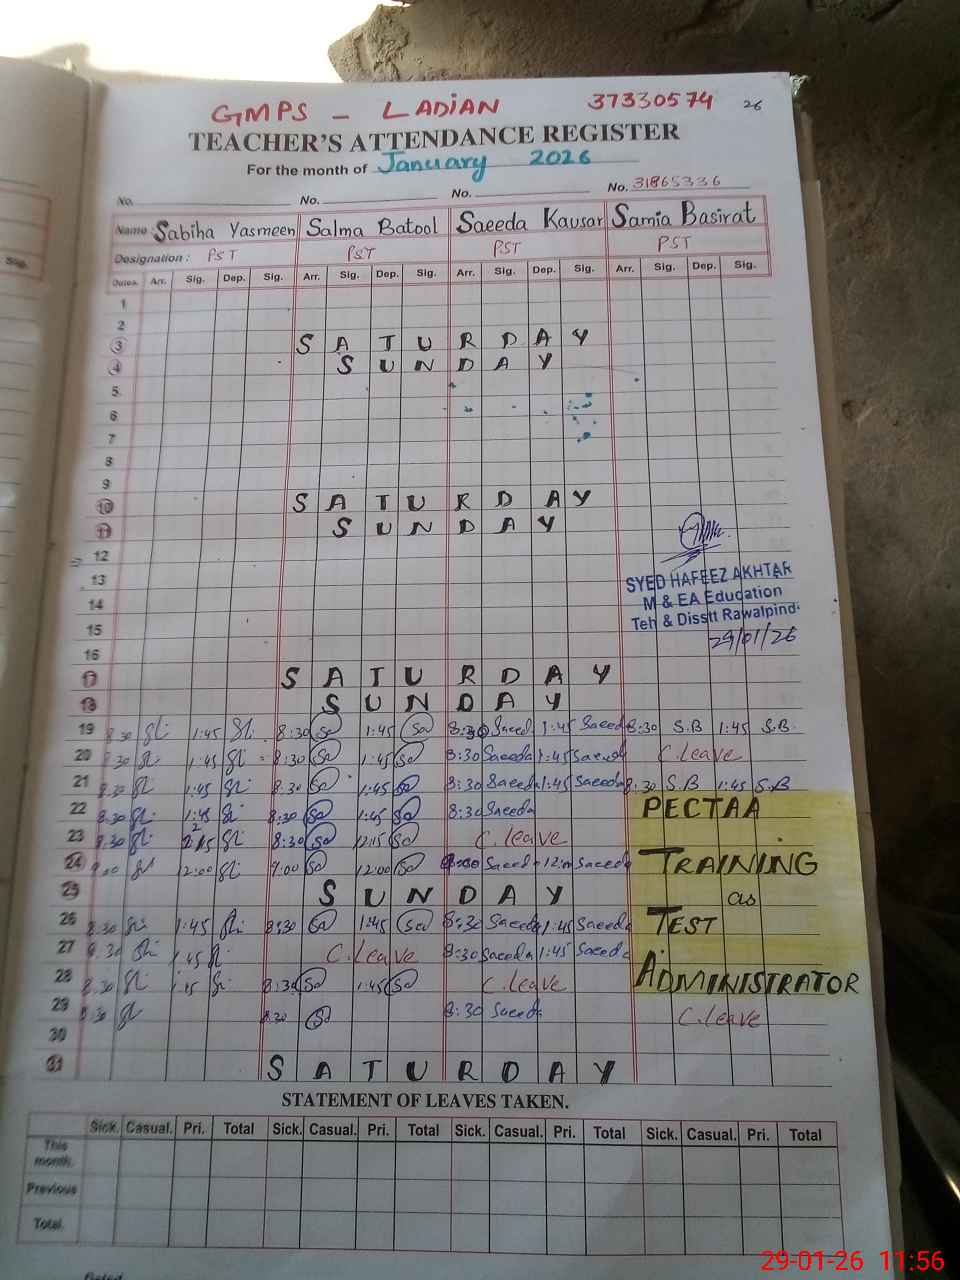 GMPS - LADIAN 37330574 26
TEACHER'S ATTENDANCE REGISTER
For the month of January 2026
No. No. No. No. 31865336
Name: Sabiha Yasmeen Salma Batool Saeeda Kausar Samia Basirat
Designation: PST PST PST PST
Dates. Arr. Sig. Dep. Sig. Arr. Sig. Dep. Sig. Arr. Sig. Dep. Sig. Arr. Sig. Dep. Sig.
1
2
3 SATURDAY
4 SUNDAY
5
6
7
8
9
10 SATURDAY
11 SUNDAY
12
13
SYED HAFEEZ AKHTAR
14 M & EA Education
15 Teh & Disstt Rawalpindi
29/01/26
16
17 SATURDAY
18 SUNDAY
19 8:30 1:45 8:30 Sa 1:45 Sa 8:30 Saeed 1:45 Saeeda 8:30 S.B 1:45 S.B.
20 8:30 1:45 8:30 Sa 1:45 Sa 8:30 Saeeda 1:45 Saeeda C.leave
21 8:30 1:45 8:30 Sa 1:45 Sa 8:30 Saeeda 1:45 Saeeda 8:30 S.B 1:45 S.B
22 8:30 1:45 8:30 Sa 1:45 Sa 8:30 Saeeda PECTAA
23 8:30 8:30 Sa 12:15 Sa C.leave
24 9:00 12:00 9:00 Sa 12:00 Sa Saeeda Saeeda TRAINING
25 SUNDAY as
26 8:30 1:45 8:30 Sa 1:45 Sa 8:30 Saeeda 1:45 Saeeda TEST
27 8:30 1:45 C.leave 8:30 Saeeda 1:45 Saeeda
28 8:30 8:30 Sa 1:45 Sa C.leave ADMINISTRATOR
29 8:30 8:30 Sa 8:30 Saeeda C.leave
30
31 SATURDAY
STATEMENT OF LEAVES TAKEN.
Sick. Casual. Pri. Total Sick. Casual. Pri. Total Sick. Casual. Pri. Total Sick. Casual. Pri. Total
This month.
Previous
Total.
29-01-26 11:56